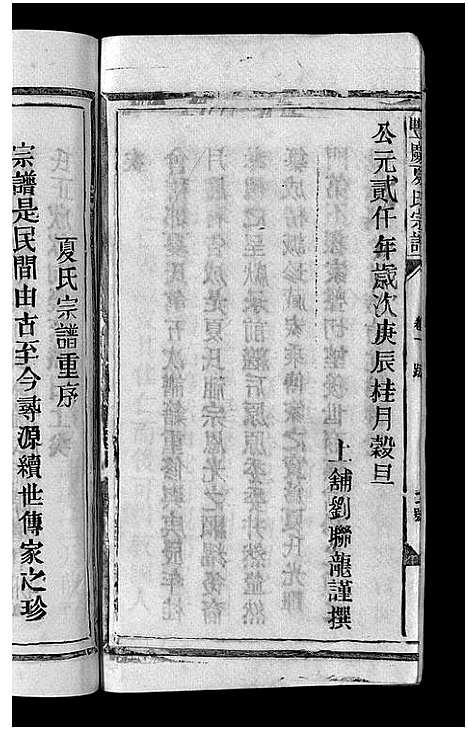 豐慶夏氏宗譜
卷一
公元貳仟年歲次庚辰桂月穀旦
上舖劉聯龍謹撰
夏氏宗譜重序
宗譜是民間由古至今尋源續世傳家之珍